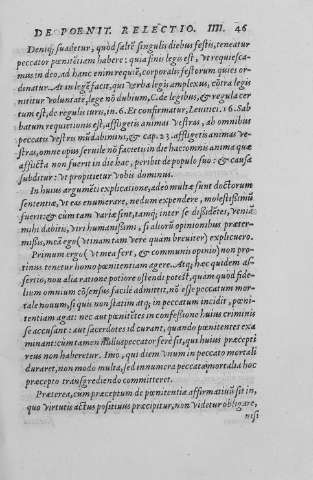 DE POENIT. RELECTIO. IIII. 46
Deniq; suadetur, quòd saltẽ singulis diebus festis, teneatur
peccator pœnitẽtiam habere: quia finis legis est, vt requiesca-
mus in deo, ad hanc enim requiẽ, corporalis festorum quies or-
dinatur. At in legẽ facit, qui verba legis amplexus, cõtra legis
nititur voluntatẽ, lege nõ dubium, C. de legibus, & regula cer
tum est, de regulis iuris, in. 6. Et confirmatur, Leuitici. 16. Sab
batum requietionis est, affligetis animas vestras, ab omnibus
peccatis vestris mũdabimini, & cap. 23. affligetis animas ve-
stras, omne opus seruile nõ facietis in die hac: omnis anima quæ
afflicta non fuerit in die hac, peribit de populo suo: & causa
subditur: vt propitietur vobis dominus.
In huius argumẽti explicatione, adeo multæ sunt doctorum
sententiæ, vt eas enumerare, nedum expendere, molestissimũ
fuerit: & cùm tam variæ sint, tamq; inter se dissidẽtes, veniã
mihi dabitis, viri humanissimi, si aliorũ opinionibus præter-
missis, meã ego (vtinam tam vere quàm breuiter) explicuero.
Primum ergo (vt mea fert, & communis opinio) non pro-
tinus tenetur homo pœnitentiam agere. Atq; hæc quidem as-
sertio, non alia ratione potiore ostendi potest, quàm quòd fide-
lium omnium cõsensus facile admittit, nõ esse peccatum mor-
tale nouum, si quis non statim atq; in peccatum incidit, pœni-
tentiam agat: nec aut pœnitẽtes in confessione huius criminis
se accusant: aut sacerdotes id curant, quando pœnitentes exa
minant: cùm tamen nullus peccator ferè sit, qui huius præcepti
reus non haberetur. Imo, qui diem vnum in peccato mortali
duraret, non modo multa, sed innumera peccata mortalia hoc
præcepto transgrediendo committeret.
Præterea, cum præceptum de pœnitentia affirmatiuũ sit in,
quo virtutis actus positiuus præcipitur, non videtur obligare,
nisi